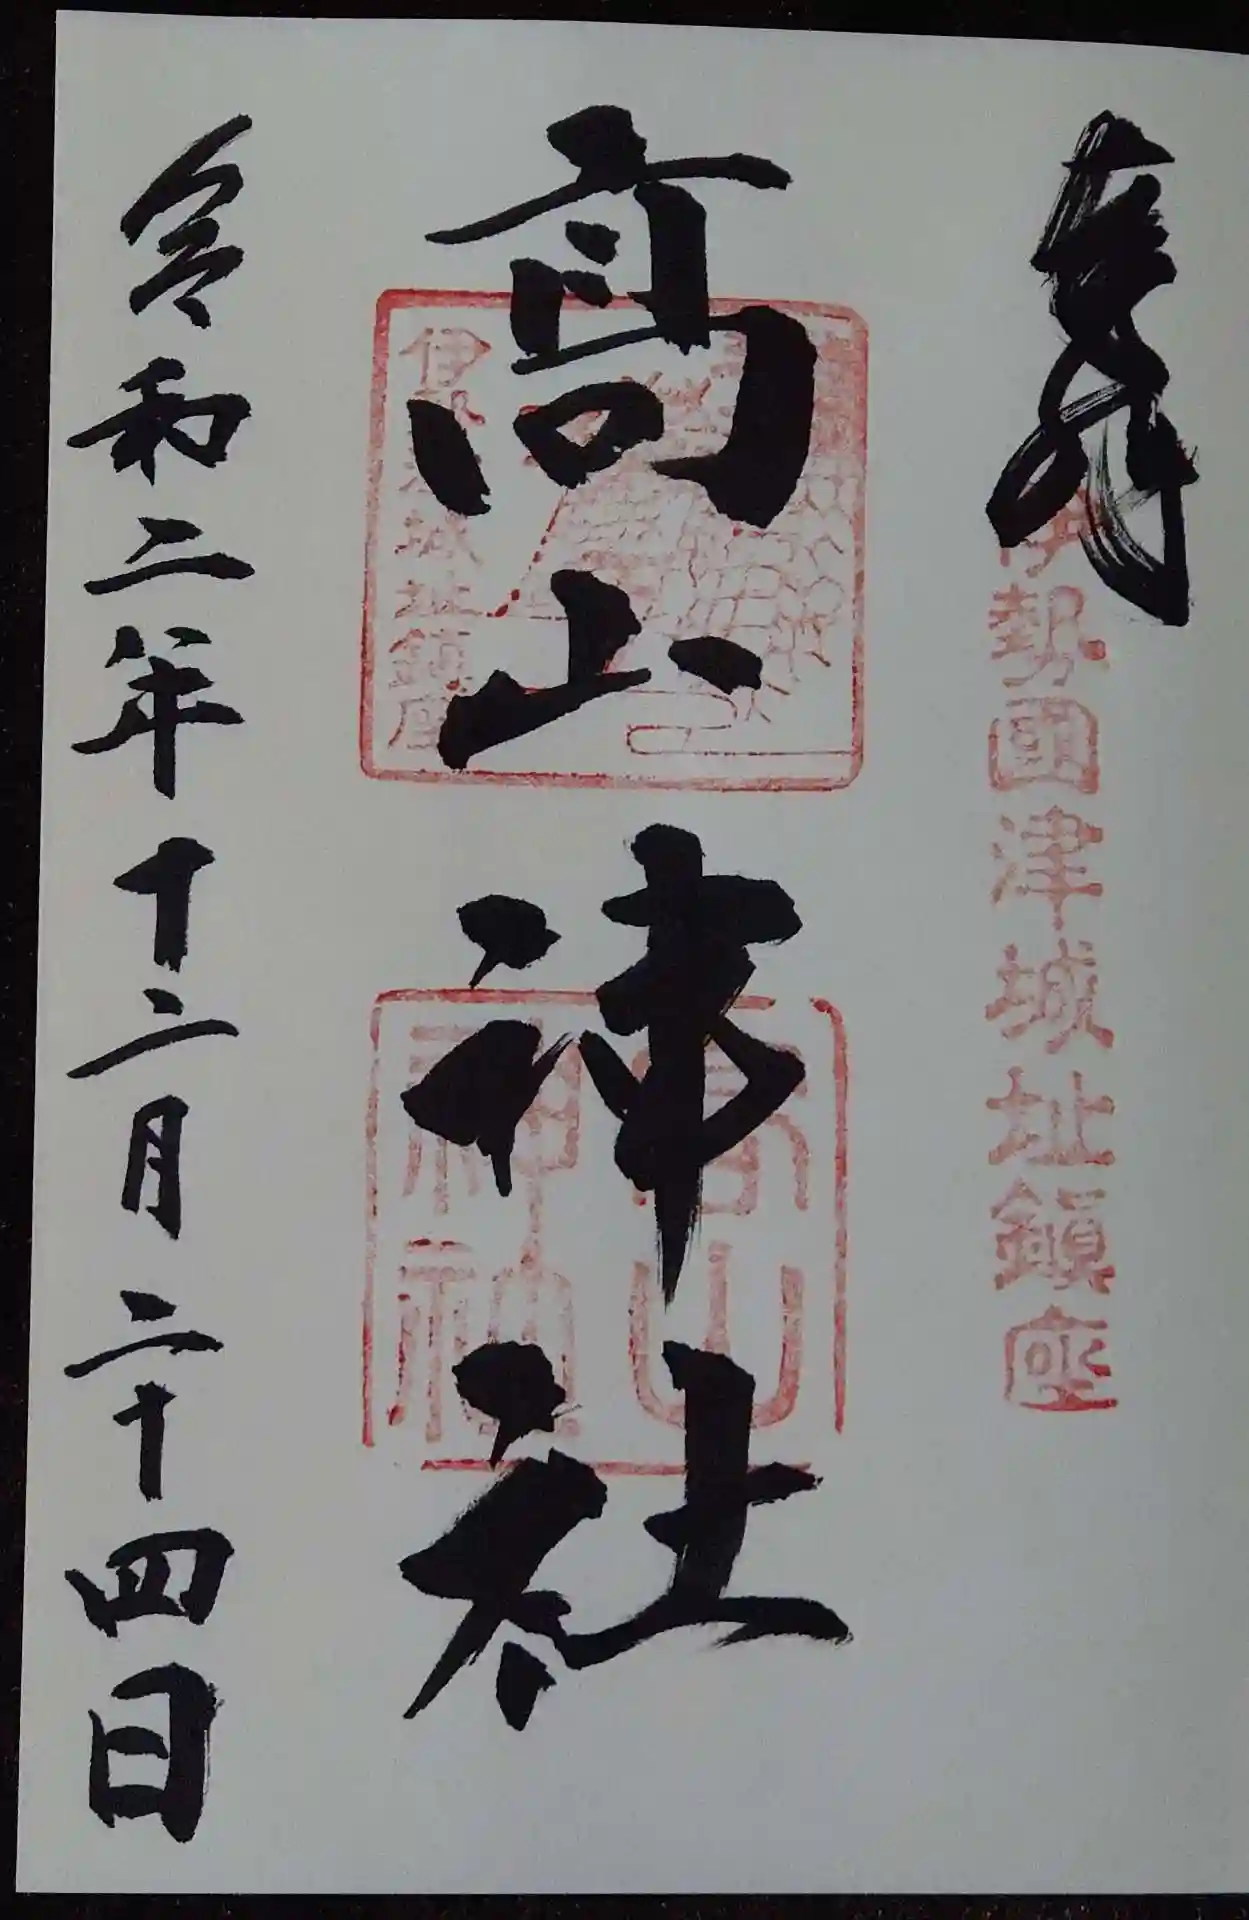 奉拝
伊勢國津城址鎮座
高山神社
高山
神社
城址鎮座
令和二年十二月二十四日